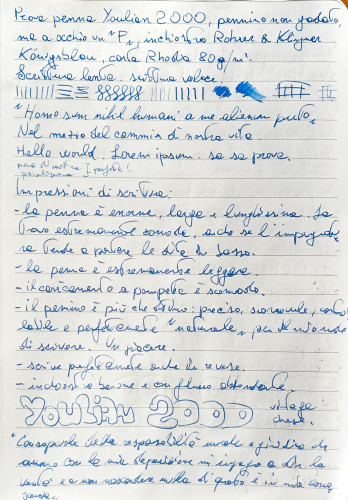 Prova penna Youlian 2000, pennino non gradato,
ma a occhio un "F", inchiostro Rohrer & Klingner
Königsblau, carta Rhodia 80 g/m².
Scrittura lenta. scrittura veloce.
"Homo sum nihil humani a me alienum puto"
Nel mezzo del cammin di nostra vita
Hello world. Lorem ipsum. sa sa prova.
Impressioni di scrittura:
- la penna è enorme, larga e lunghissima. La
trovo estremamente comoda, anche se l'impugnatu
ra tende a portare le dita in basso.
- la penna è estremamente leggera.
- il caricamento a pompetta è scomodo.
- il pennino è più che ottimo: preciso, scorrevole, control
labile e perfettamente "naturale" per il mio modo
di scrivere. Un piacere.
- scrive perfettamente anche in reverse.
- inchiostro bene e con flusso abbondante.
YOULIAN 2000
vintage
chinese.
"Consapevole della responsabilità morale e giuridica che
assumo con la mia deposizione mi impegno a dire la
verità e a non nascondere nulla di quanto è a mia cono
scenza"